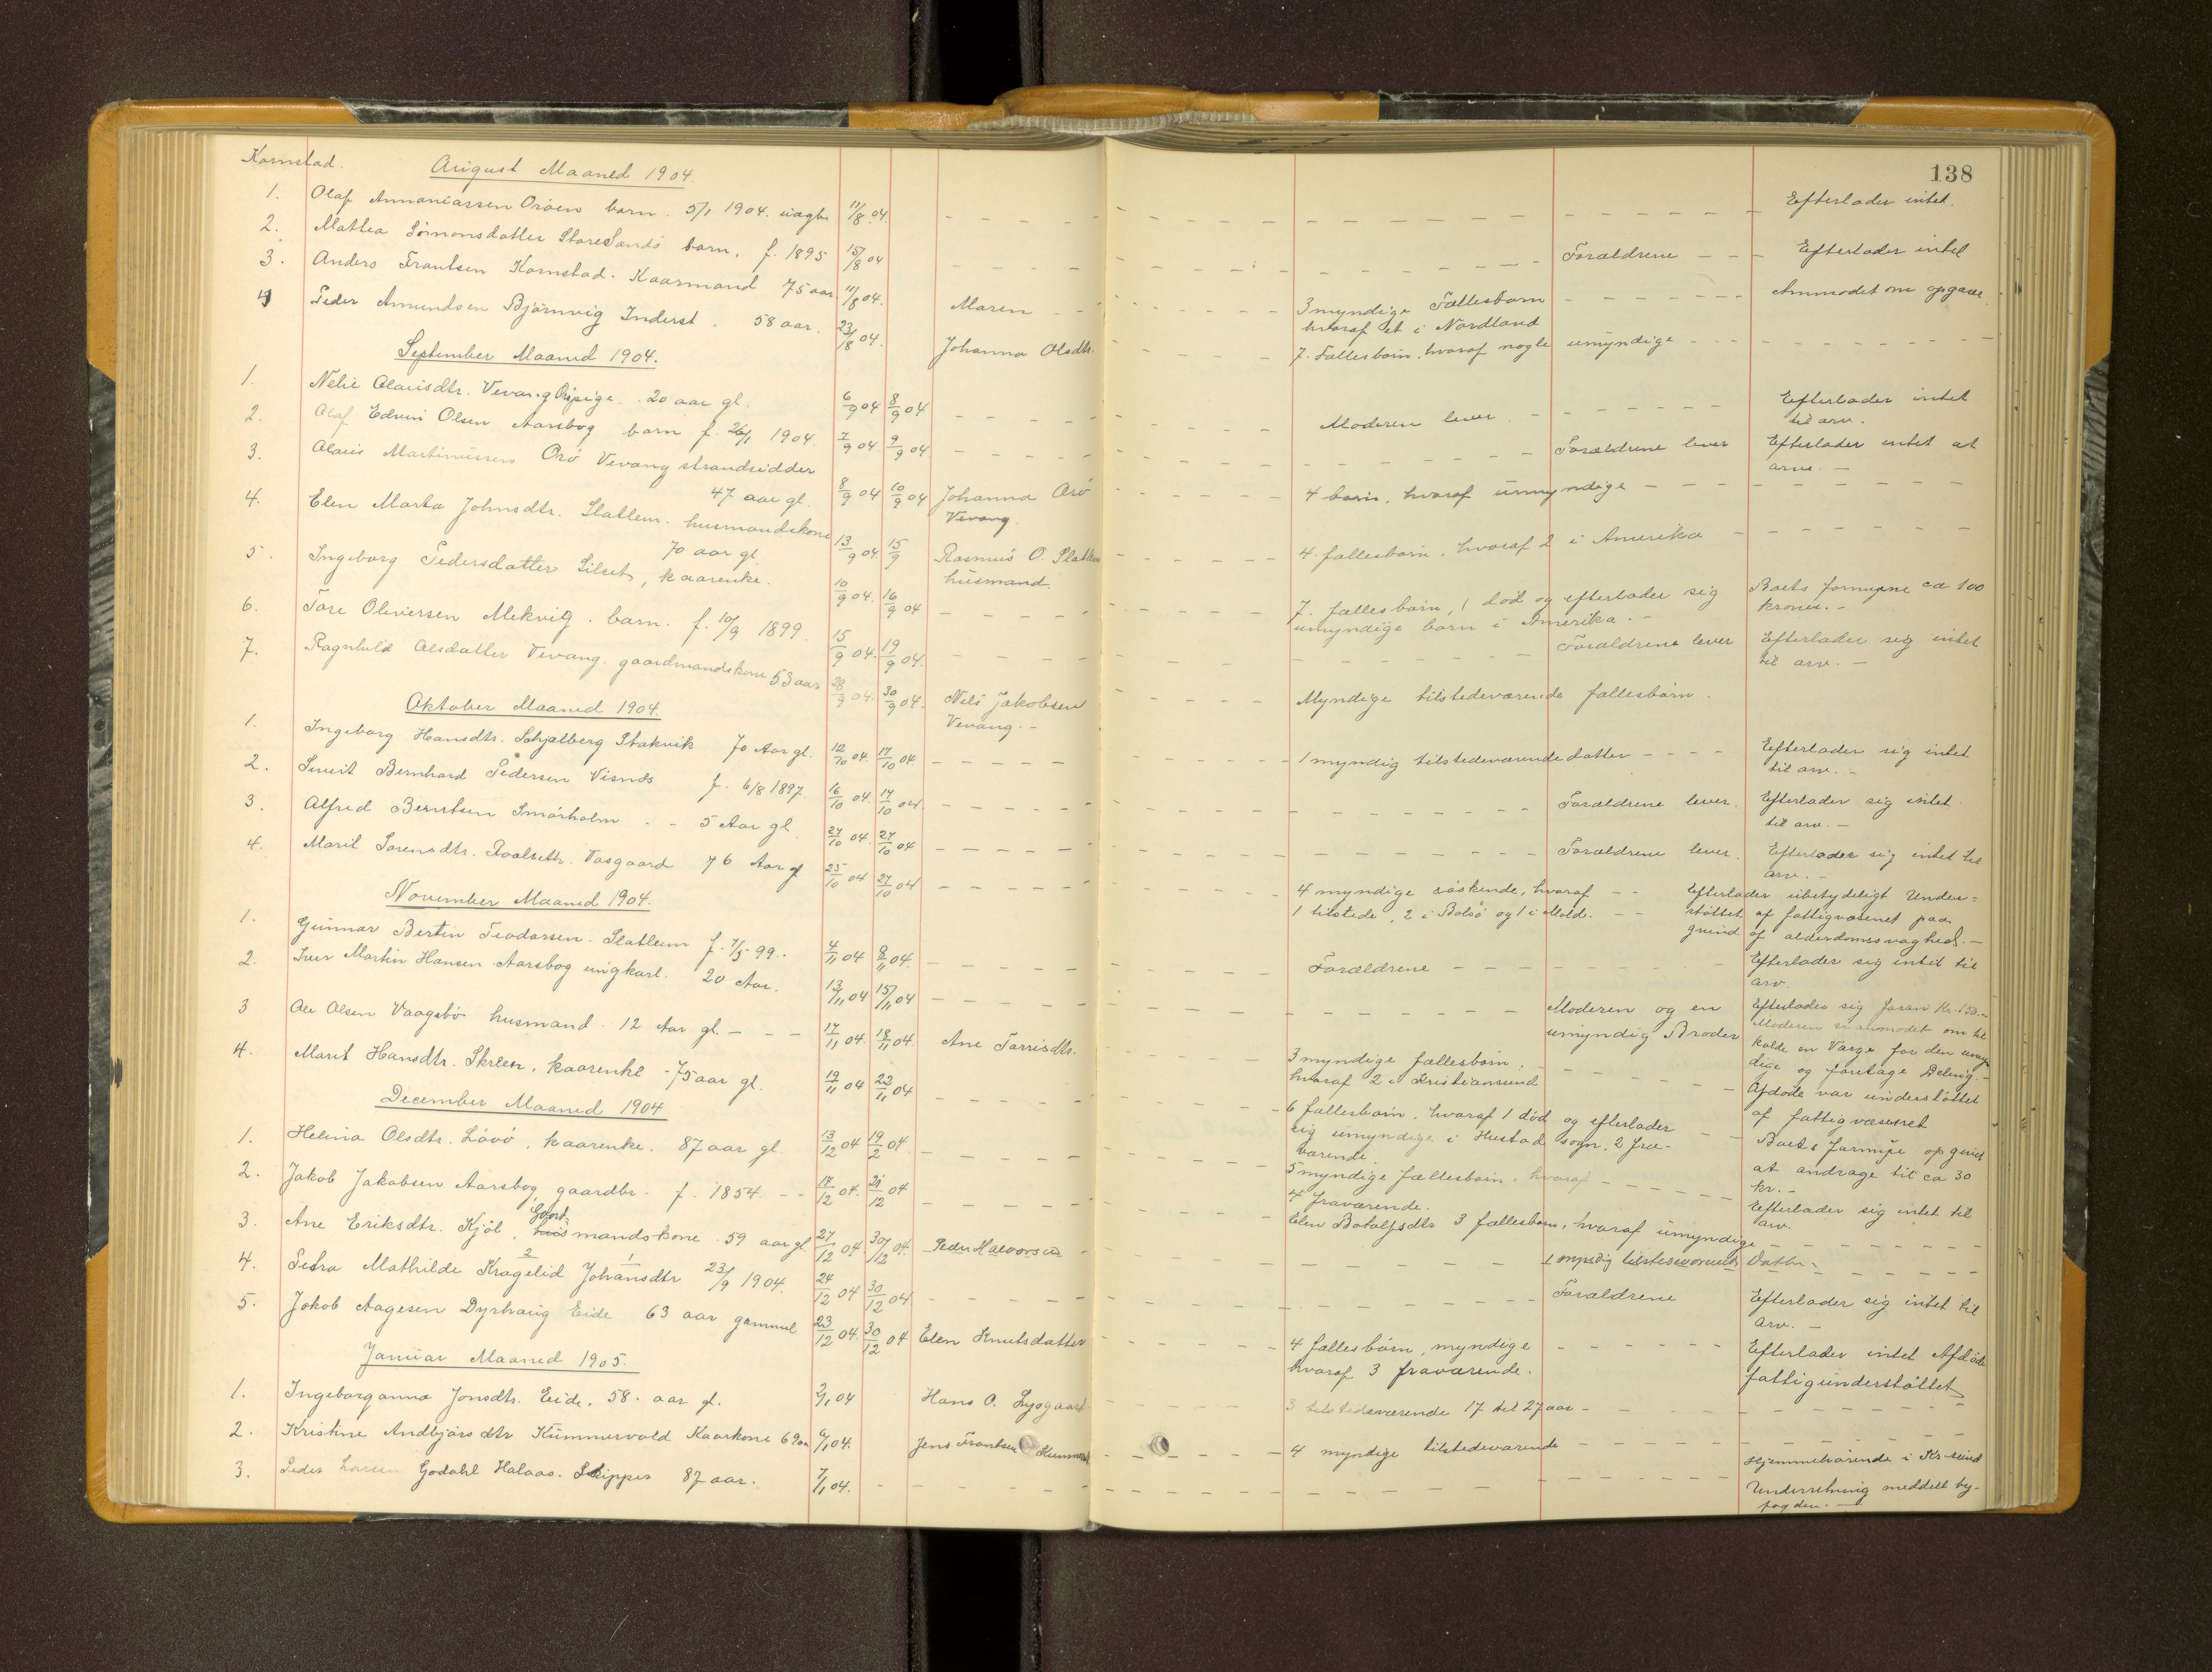 138
Kornstad. August Maaned 1904.
1. Olaf Annaniassen Orøen barn. 5/1 1904. uægte 11/8 04. Efterlader intet.
2. Mattea Simonsdatter StoreSandø barn. f. 1895 15/8 04 Forældrene Efterlader intet
3. Anders Frantsen Kornstad. Kaarmand 75 aar 11/8 04. Maren 3 myndige Fællesbørn Anmodet om opgave
hvoraf et i Nordland
4 Peder Amundsen Bjørnvig Inderst. 58 aar. 23/8 04. Johanna Olsdtr. 7. Fællesbørn, hvoraf nogle umyndige
September Maaned 1904.
1. Nelie Olausdtr. Vevang pige. 20 aar gl. 6/9 04 8/9 04 Moderen lever Efterlader intet
til arv.
2. Olaf Edvin Olsen Aarsbog barn f. 26/1 1904. 7/9 04. 9/9 04 Forældrene lever Efterlader intet at
arve. —
3. Olaus Martinussen Orø Vevang strandsidder
47 aar gl. 8/9 04 10/9 04 Johanna Orø 4 børn, hvoraf umyndige
Vevang.
4. Elen Marta Johnsdtr. Slatlem. husmandskone
70 aar gl. 13/9 04. 15/9 Rasmus O. Slatlem 4 fællesbørn, hvoraf 2 i Amerika
husmand.
5. Ingeborg Pedersdatter Silset, kaarenke. 10/9 04. 16/9 04 7. fællesbørn, 1 død og efterlader sig Boets formuene ca 100
umyndige børn i Amerika. — kroner. —
6. Tore Oliversen Mekvig. barn. f. 10/9 1899. 15/9 04. 19/9 04. Forældrene lever Efterlader sig intet
til arv. —
7. Ragnhild Olsdatter Vevang. gaardmandskone 53 aar 28/9 04. 30/9 04. Nils Jakobsen Myndige tilstedeværende fællesbørn.
Vevang. —
Oktober Maaned 1904.
1. Ingeborg Hansdtr. Schjølberg Stakvik 70 Aar gl. 12/10 04. 17/10 04. 1 myndig tilstedeværende datter Efterlader sig intet
til arv. —
2. Sivert Bernhard Pedersen Visnes f. 6/8 1897. 16/10 04. 17/10 04 Forældrene lever. Efterlader sig intet
til arv. —
3. Alfred Berntsen Smørholm 5 Aar gl. 24/10 04. 27/10 04 Forældrene lever. Efterlader sig intet til
arv. —
4. Marit Sorensdtr. Roalseth. Vasgaard 76 Aar gl 25/10 04 27/10 04 4 myndige søskende, hvoraf Efterlader ubetydeligt Under=
1 tilstede, 2 i Bolsø og 1 i Molde. støttet af fattigvæsenet paa
grund af alderdomssvaghed. —
November Maaned 1904.
1. Gunnar Bertin Teodorsen. Slatlem f. 7/5 99. 4/11 04 9/11 04. Forældrene Efterlader sig intet til
arv.
2. Iver Martin Hansen Aarsbog ungkarl. 20 Aar. 13/11 04 15/11 04 Moderen og en Efterlader sig
umyndig Broder Moderen er anmodet om til
kalde en Værge for den umyn
dige og foretage Deling. —
3 Ole Olsen Vaagsbø husmand. 12 Aar gl. 17/11 04. 18/11 04. Ane Torrisdtr. 3 myndige fællesbørn.
hvoraf 2 i Kristiansund
4. Marit Hansdtr. Skreen, kaarenke 75 aar gl. 19/11 04 22/11 04 6 fællesbørn, hvoraf 1 død og efterlader Afdøde var understøttet
sig umyndige i Hustad sogn, 2 fra- af fattigvæsenet
værende.
December Maaned 1904
1. Helina Olsdtr. Løvø, kaarenke. 87 aar gl. 13/12 04 19/2 04. 5 myndige fællesbørn, hvoraf Boets formue opgivet
4 fraværende. at andrage til ca 30
kr. —
2. Jakob Jakobsen Aarsbog, gaardbr. f. 1854. 17/12 04. 21/12 04 Elen Botolfsdtr 3 fællesbørn, hvoraf umyndige Efterlader sig intet til
arv.
3. Ane Eriksdtr. Kjøl, Gaardmandskone. 59 aar gl 27/12 04. 30/12 04. Peder Halvorsen 1 myndig tilstedeværende Datter.
4. Petra Mathilde Kragelid Johansdtr 23/9 1904. 24/12 04 30/12 04. Forældrene Efterlader sig intet til
arv. —
5. Jakob Aagesen Dyrhaug Eide 63 aar gammel 23/12 04. 30/12 04 Elen Knutsdatter 4 fællesbørn, myndige Efterlader intet Afdøde
hvoraf 3 fraværende. fattigunderstøttet
Januar Maaned 1905.
1. Ingeborganna Jonsdtr. Eide. 58. aar gl. 2/1 04 Hans O. Lysgaard 3 tilstedeværende 17 til 27 aar
2. Kristine Andbjørsdtr Kummervold Kaarkone 69 aar 6/1 04. Jens Frantsen 4 myndige tilstedeværende
3. Peder Larsen Godahl Halaas. Skipper 87 aar. 7/1 04. Hjemmehørende i Kr-sund
Underretning meddelt by-
fogden. —